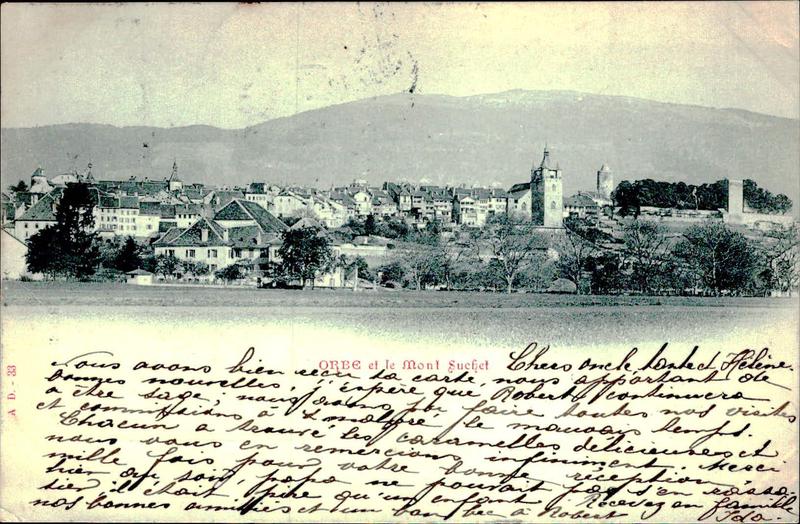 ORBE et le Mont Suchet
A D. - 33
Chers oncle tante et Hélène.
Nous avons bien reçu la carte, nous apportant de
bonnes nouvelles, j'espère que Robert continuera
à être sage; nous avons pu faire toutes nos visites
et commissions à malgré le mauvais temps.
Chacun a trouvé les caramelles délicieuses et
nous vous en remercions infiniment. Merci
mille fois pour votre bonne réception,
hier au soir, papa ne pouvait pas s'en
tien il était pire qu'un enfant. Recevez en famille
nos bonnes amitiés et un bon bec à Robert
Ida.